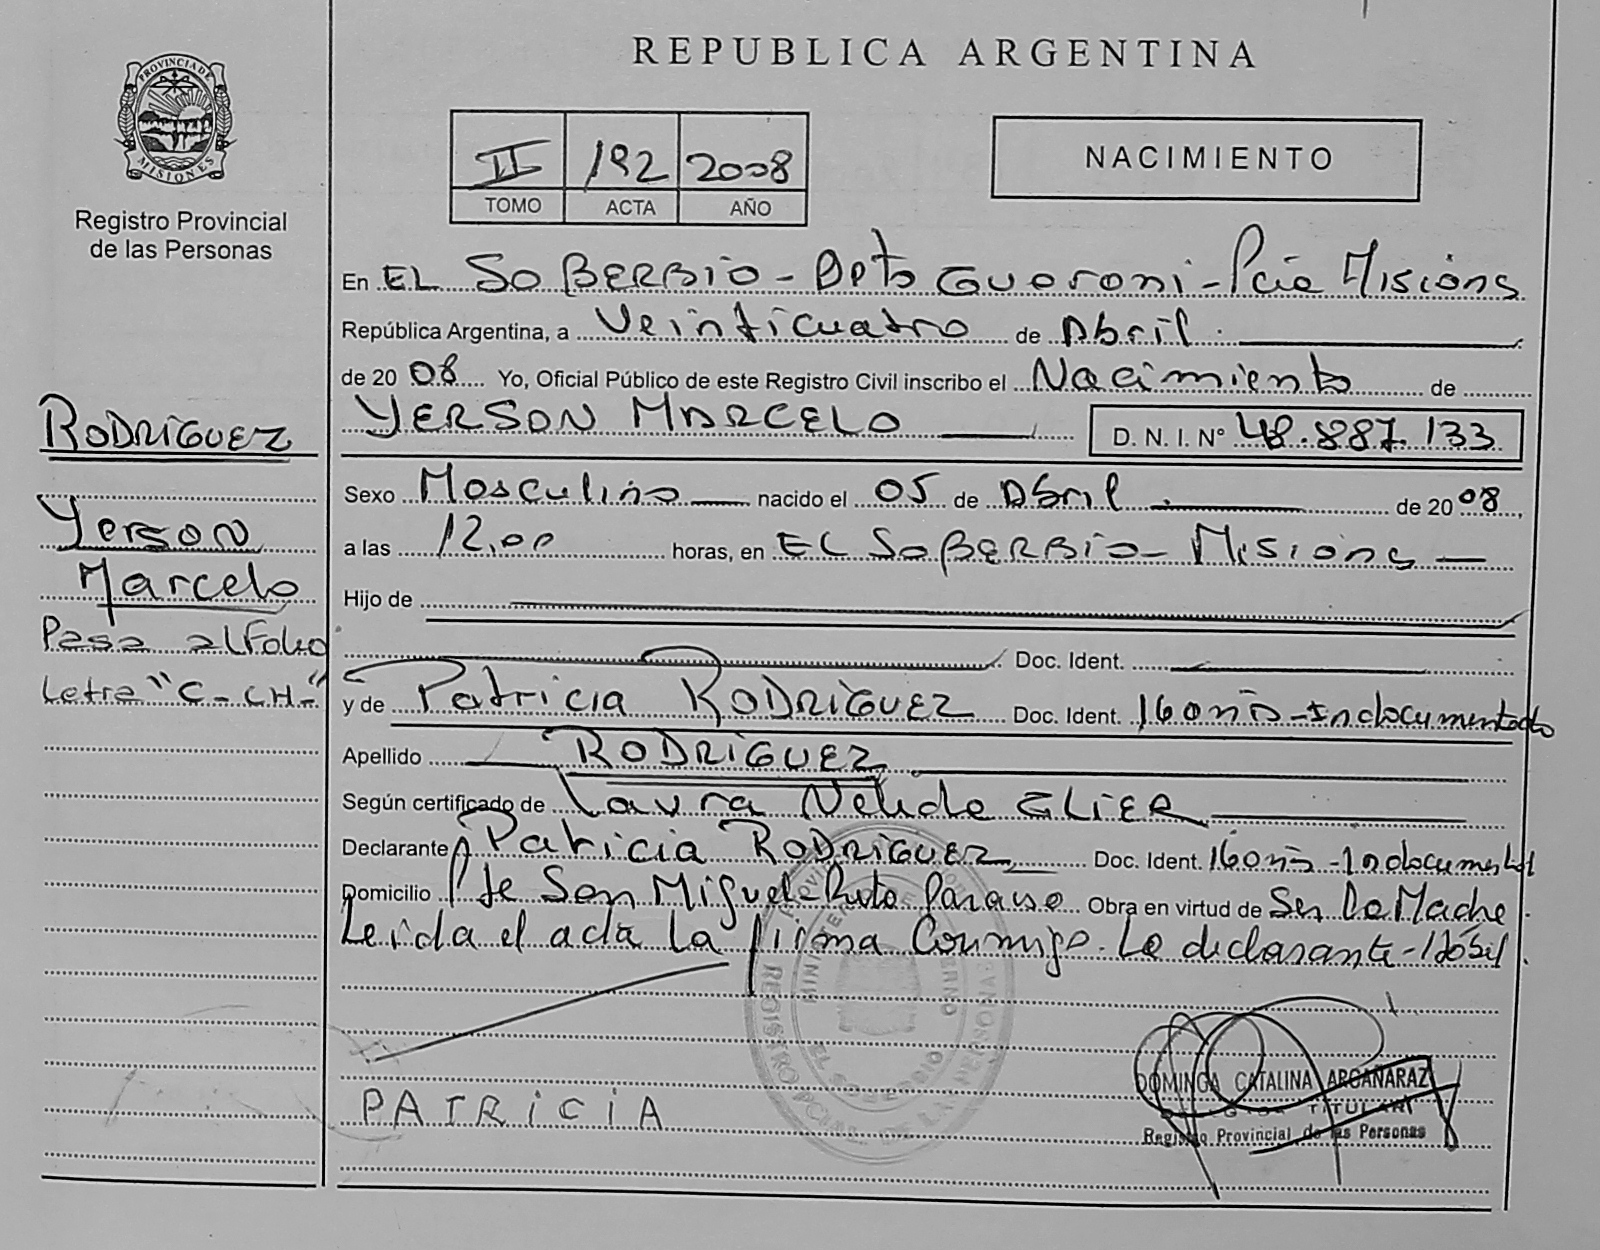 PROVINCIA DE
MISIONES
Registro Provincial
de las Personas
RODRIGUEZ
Yerson
Marcelo
Pasa al Folio
Letra "C-CH-"
REPUBLICA ARGENTINA
II 192 2008
TOMO ACTA AÑO
NACIMIENTO
En EL SOBERBIO - Dpto Guaroni - Pcia Misions
República Argentina, a Veinticuatro de Abril
de 20 08 Yo, Oficial Público de este Registro Civil inscribo el Nacimiento de
YERSON MARCELO D. N. I. N° 48.887.133
Sexo Masculino nacido el 05 de Abril de 20 08,
a las 12,00 horas, en EL SOBERBIO - Misions
Hijo de
Doc. Ident.
y de Patricia RODRIGUEZ Doc. Ident. 16 años - Indocumentado
Apellido RODRIGUEZ
Según certificado de Laura Nelida GLIER
Declarante Patricia RODRIGUEZ Doc. Ident. 16 años - Indocumentad
Domicilio Pte San Miguel - Ruta Paraiso Obra en virtud de Ser La Madre.
Leida el acta la firma Conmigo. La declarante - Hábil.
PATRICIA
DOMINGA CATALINA ARGAÑARAZ
TITULAR
Registro Provincial de las Personas
EL SOBERBIO